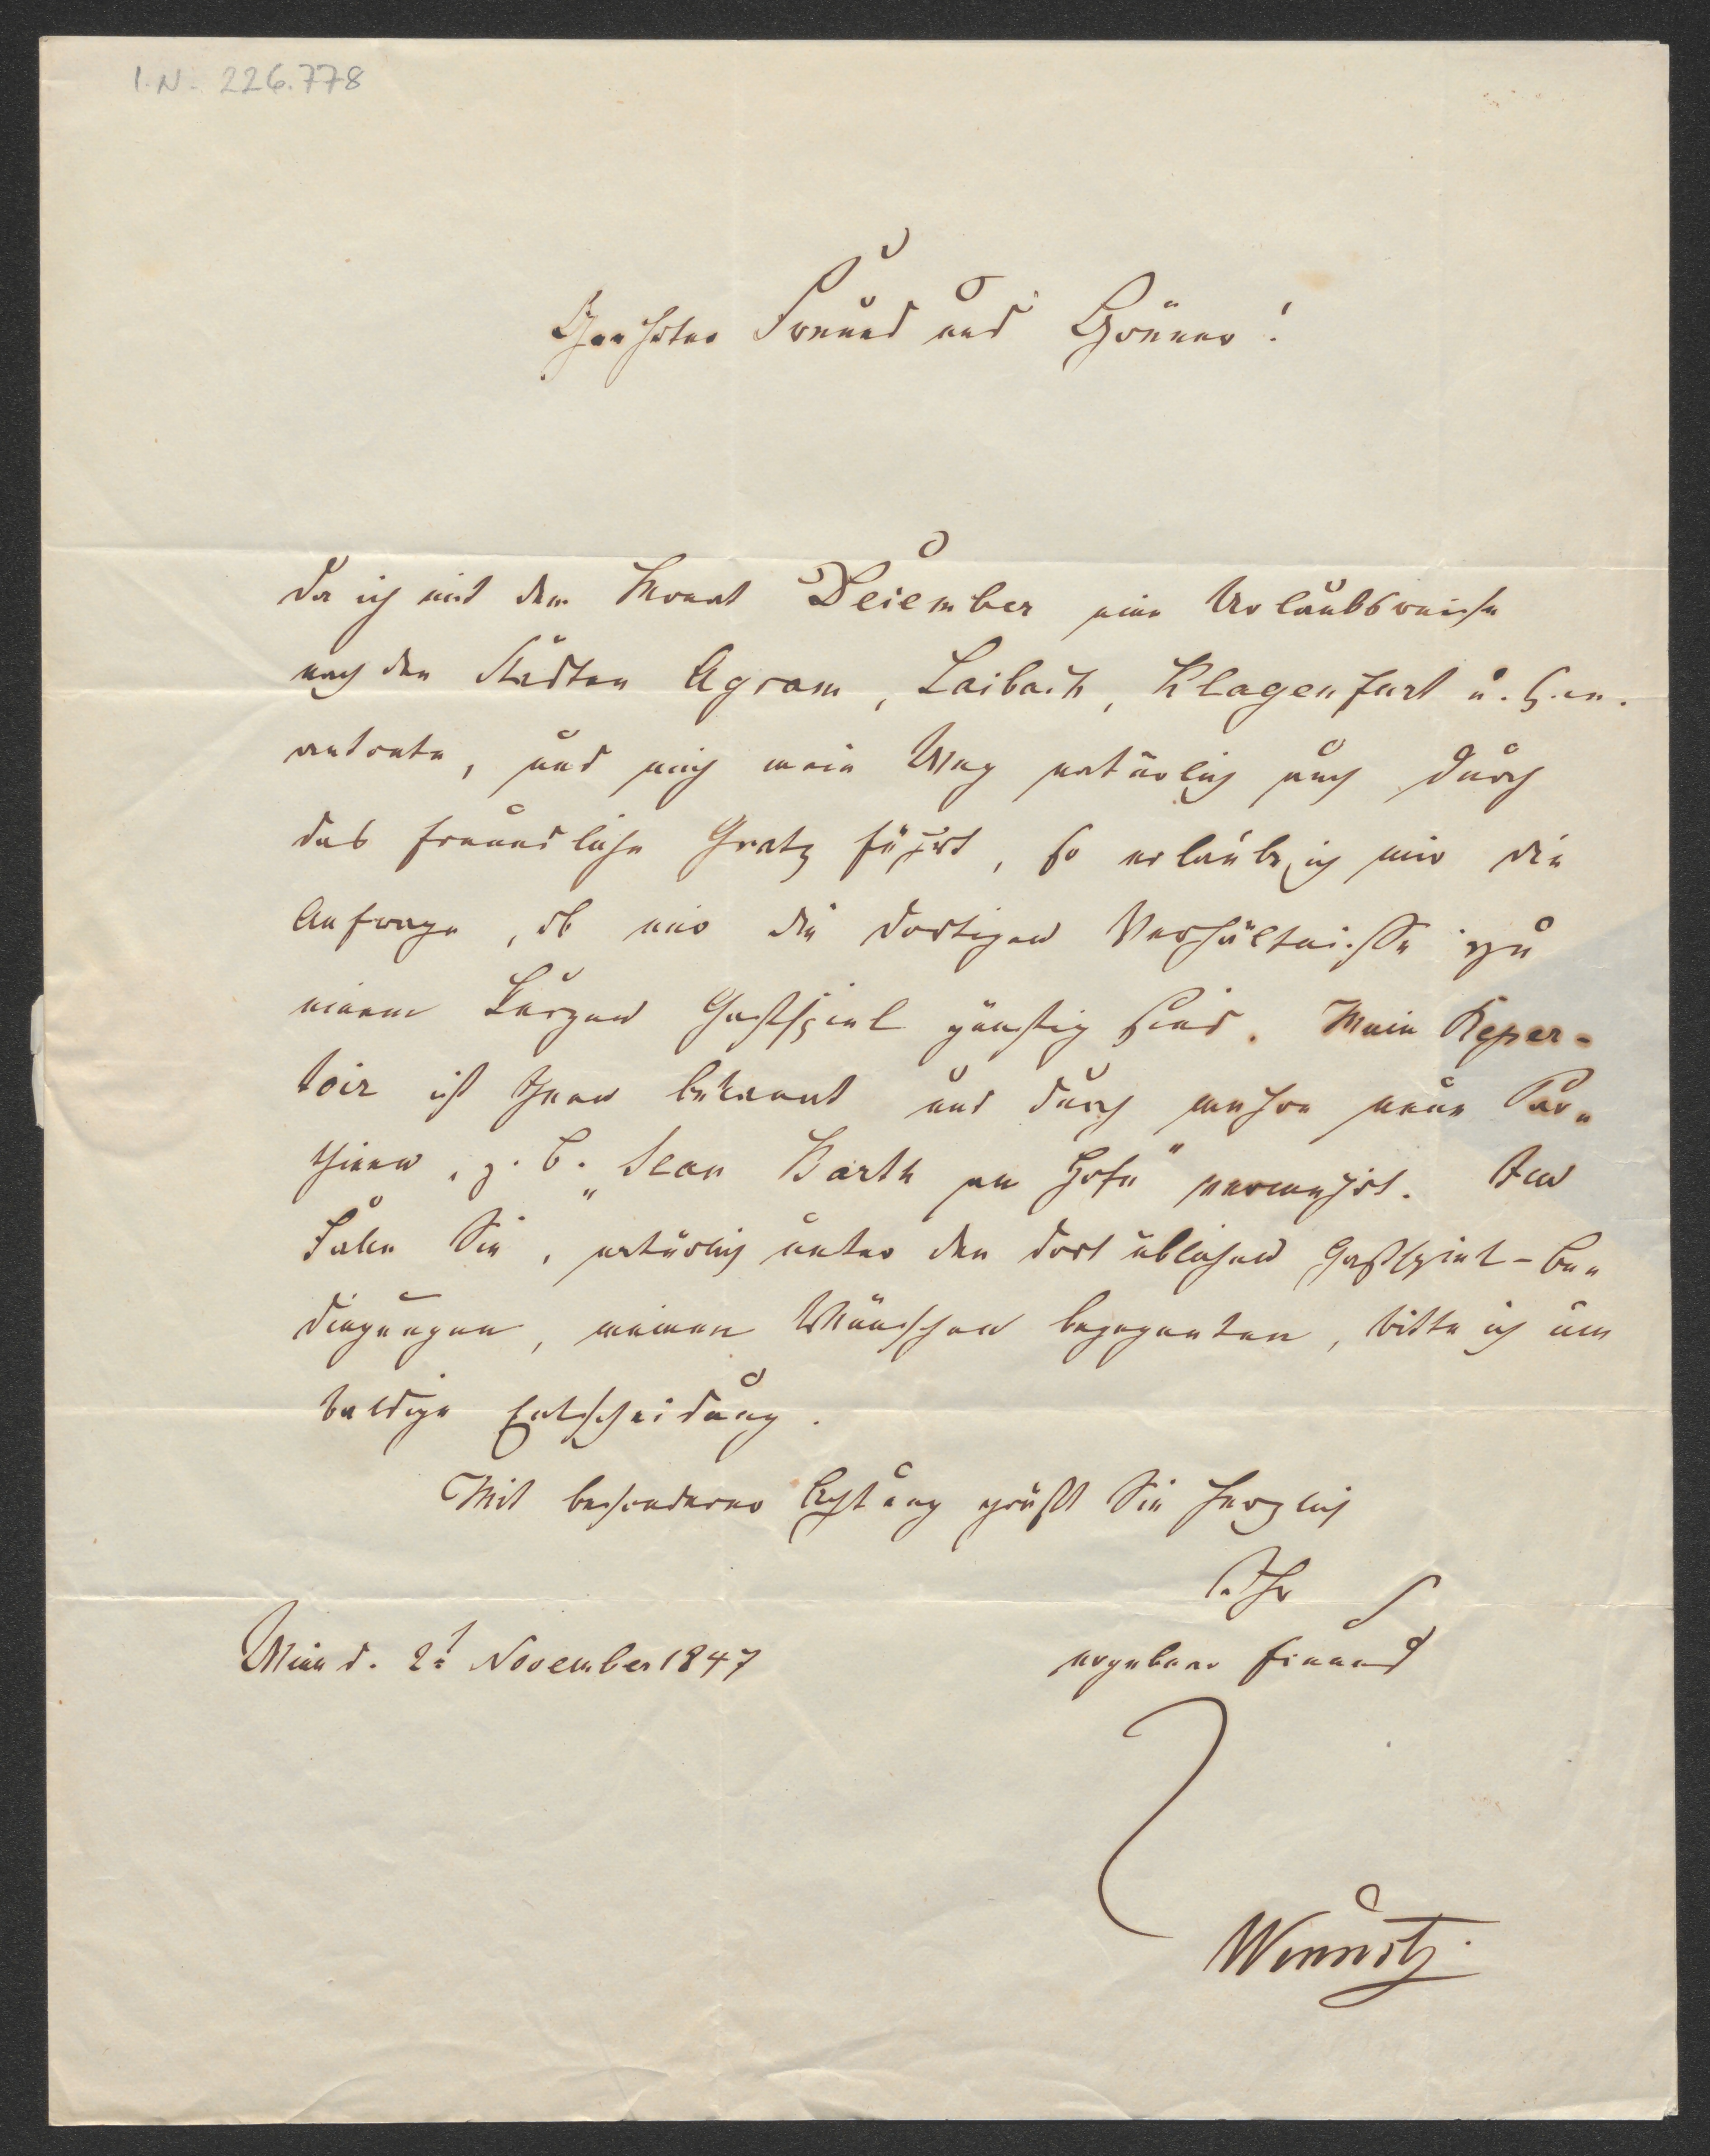 I.N. 226.778
Geehrter Freund und Gönner!
Da ich mit dem Monat December eine Urlaubsreise
nach den Städten Agram, Laibach, Klagenfurt u.
antrete, und mich mein Weg natürlich auch durch
das freundliche Gratz führt, so erlaube ich mir die
Anfrage, ob mir die dortigen Verhältnisse zu
einem kurzen Gastspiel günstig sind. Mein Reper-
toir ist Ihnen bekannt und durch mehre neue Par-
thieen, z. B. „Jean Barth am Hofe" vermehrt. Im
Falle Sie, natürlich unter den dort üblichen Gastspiel-Be-
dingungen, meinen Wünschen begegneten, bitte ich um
baldige Entscheidung.
Mit besonderer Achtung grüßt Sie herzlich
Ihr
Wien d. 2t November 1847
ergebener Freund